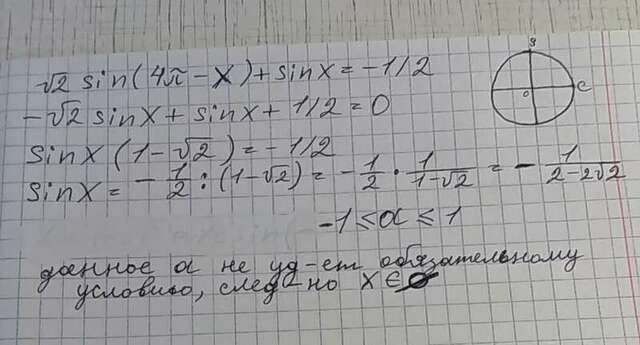 √2 sin(4π-x)+sinx=-1/2
-√2 sinx+sinx+1/2=0
sinx(1-√2)=-1/2
sinx=-1/2:(1-√2)=-1/2·1/(1-√2)=-1/(2-2√2)
-1≤a≤1
данное a не уд-ет обязательному
условию, след-но x∈∅
s
o
c